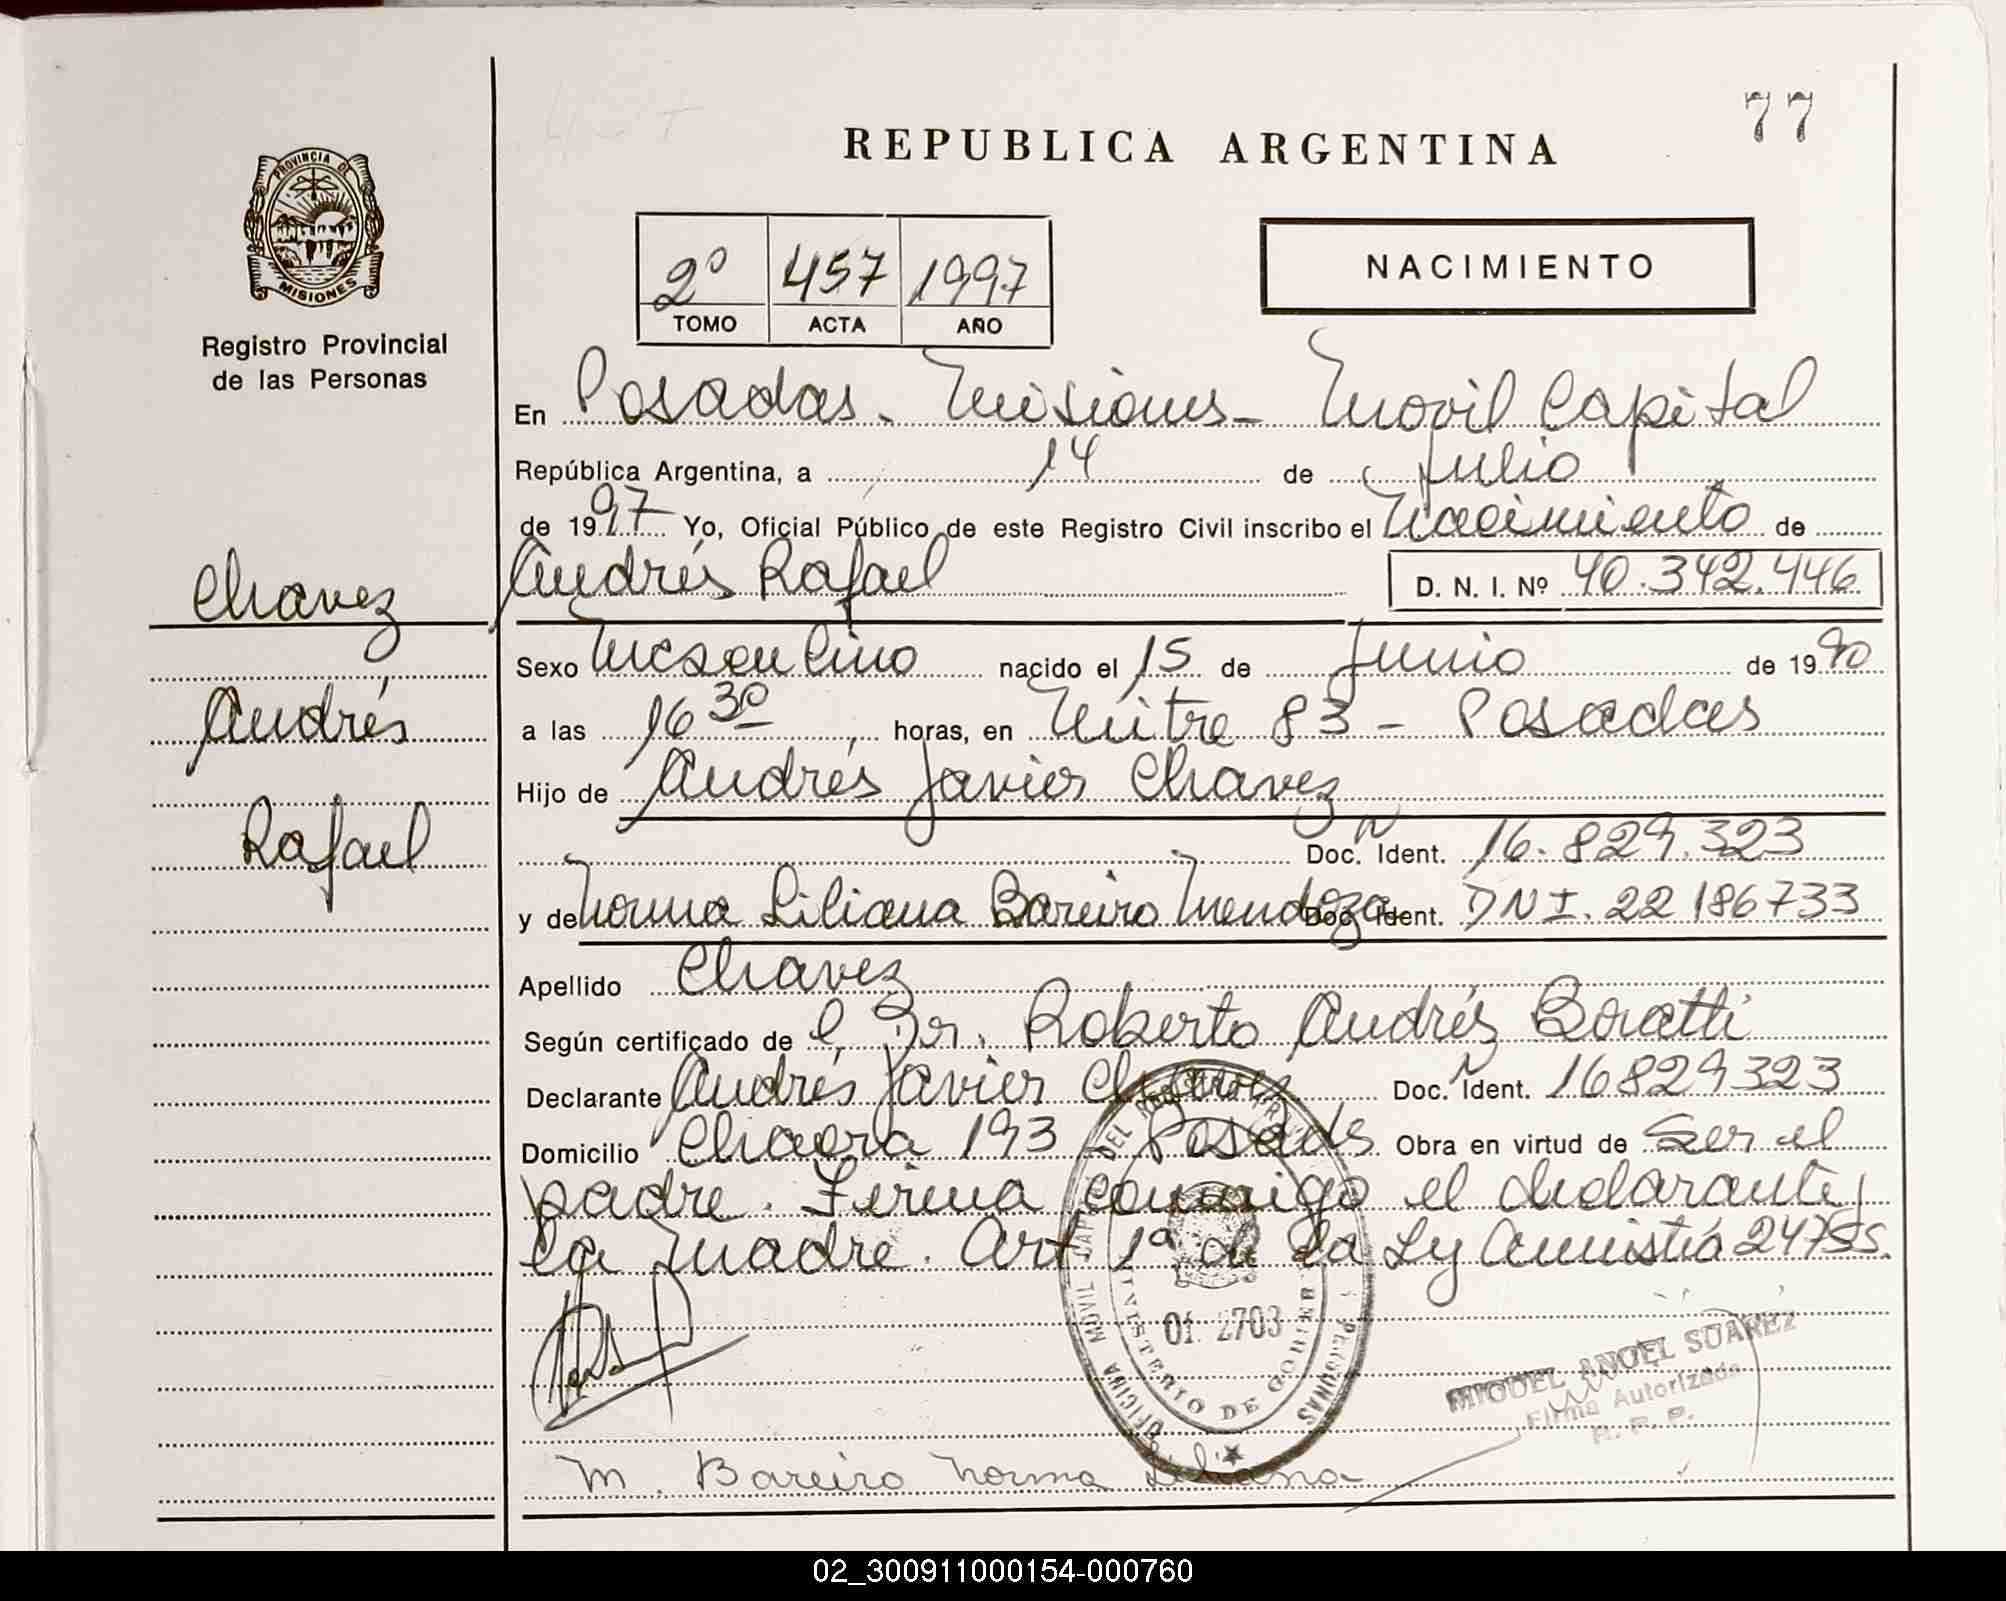 77
REPUBLICA ARGENTINA
PROVINCIA DE
MISIONES
Registro Provincial
de las Personas
2º 457 1997
TOMO ACTA AÑO
NACIMIENTO
En Posadas - Misiones - Movil Capital
República Argentina, a 14 de Julio
de 1997 Yo, Oficial Público de este Registro Civil inscribo el Nacimiento de
Chavez
Andrés Rafael D. N. I. Nº 40.342.446
Sexo Masculino nacido el 15 de Junio de 1990
Andrés
a las 16 30 horas, en Mitre 83 - Posadas
Hijo de Andrés Javier Chavez
Rafael
Doc. Ident. 16.829.323
y de Norma Liliana Bareiro Mendoza Doc. Ident. DNI. 22 186733
Apellido Chavez
Según certificado de el Dr. Roberto Andrés Boratti
Declarante Andrés Javier Chavez Doc. Ident. 16829323
Domicilio Chacra 193 - Posads Obra en virtud de Ser el
padre. Firma conmigo el declarante y
la Madre. Art 1º de la Ly Amnistía 24755.
OFICINA MOVIL
MINISTERIO DE GOBIERNO
01 2703
MIGUEL ANGEL SUAREZ
Firma Autorizada
R. P. P.
M. Bareiro Norma Liliana
02_300911000154-000760